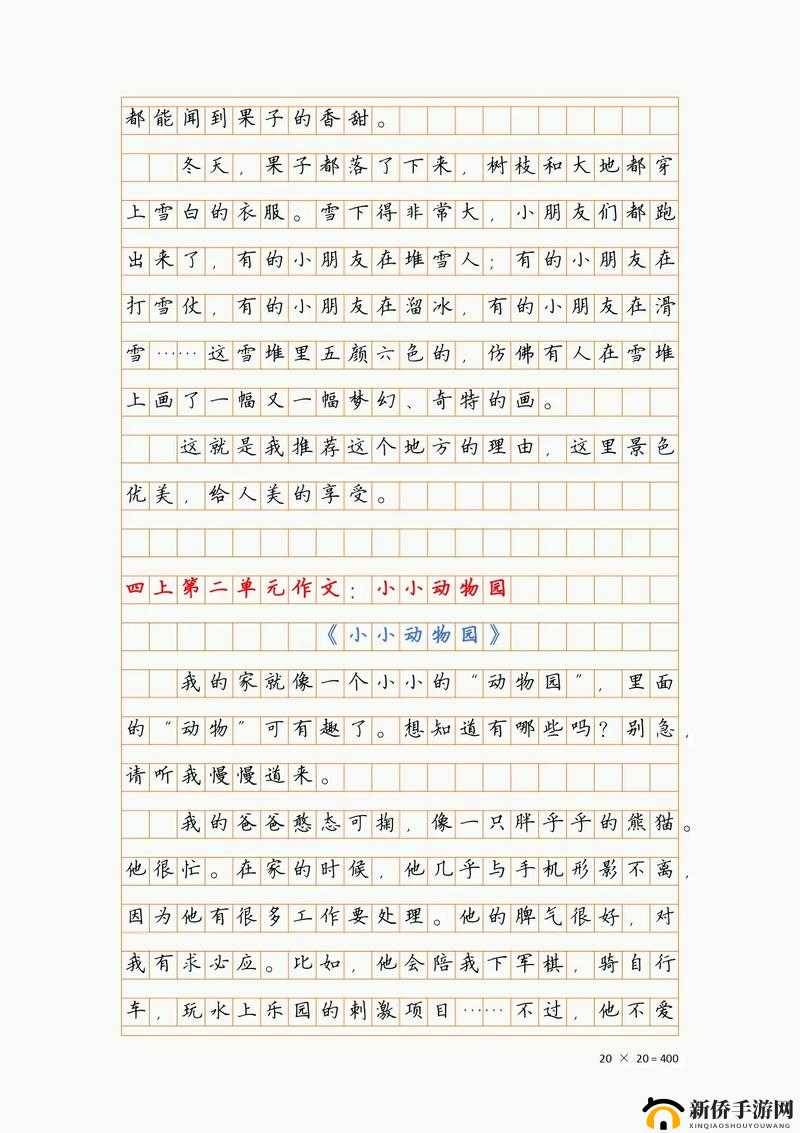 都能闻到果子的香甜。
冬天，果子都落了下来，树枝和大地都穿
上雪白的衣服。雪下得非常大，小朋友们都跑
出来了，有的小朋友在堆雪人；有的小朋友在
打雪仗，有的小朋友在溜冰，有的小朋友在滑
雪……这雪堆里五颜六色的，仿佛有人在雪堆
上画了一幅又一幅梦幻、奇特的画。
这就是我推荐这个地方的理由，这里景色
优美，给人美的享受。
四上第二单元作文：小小动物园
《小小动物园》
我的家就像一个小小的“动物园”，里面
的“动物”可有趣了。想知道有哪些吗？别急，
请听我慢慢道来。
我的爸爸憨态可掬，像一只胖乎乎的熊猫。
他很忙。在家的时候，他几乎与手机形影不离，
因为他有很多工作要处理。他的脾气很好，对
我有求必应。比如，他会陪我下军棋，骑自行
车，玩水上乐园的刺激项目……不过，他不爱
20 × 20=400
新侨手游网
XINQIAOSHOUYOUWANG